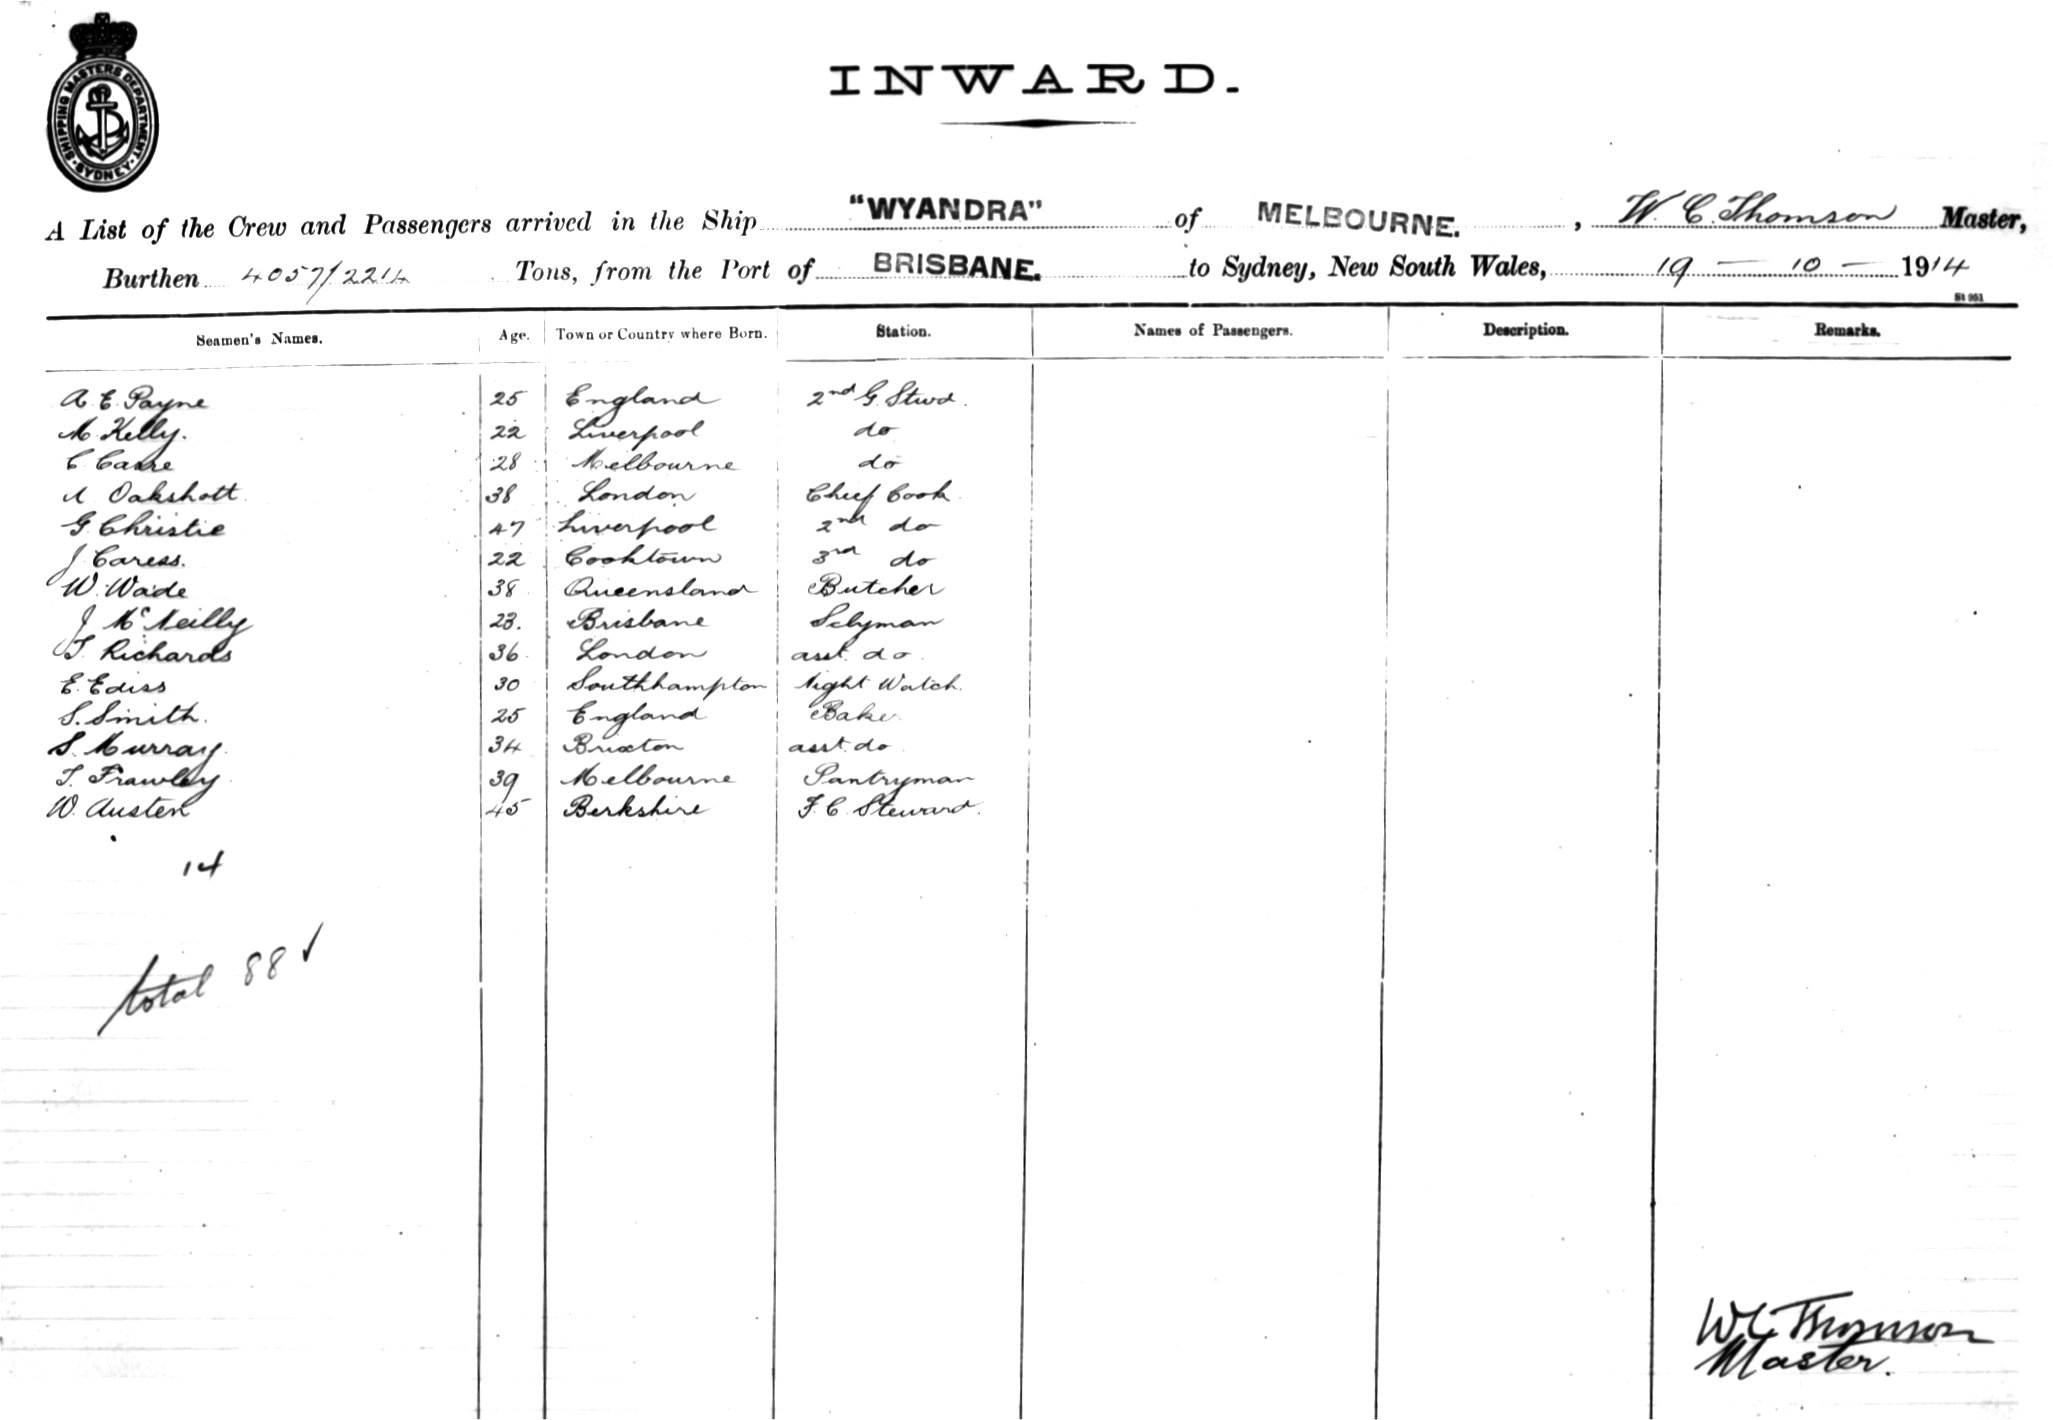 SHIPPING MASTERS DEPARTMENT · SYDNEY ·
INWARD.
A List of the Crew and Passengers arrived in the Ship "WYANDRA" of MELBOURNE. , W. C. Thomson Master,
Burthen 4057/2214 Tons, from the Port of BRISBANE. to Sydney, New South Wales, 19 — 10 — 1914
St 951
Seamen's Names. Age. Town or Country where Born. Station. Names of Passengers. Description. Remarks.
A. E. Payne 25 England 2nd G. Stwd.
M. Kelly. 22 Liverpool do
C. Carre 28 Melbourne do
Oakshott 38 London Chief Cook
G. Christie 47 Liverpool 2nd do
J Caress. 22 Cooktown 3rd do
W. Wade 38 Queensland Butcher
J McNeilly 23. Brisbane Sclyman
T Richards 36 London asst. do.
E. Ediss 30 Southhampton Night Watch.
S. Smith. 25 England Baker
S. Murray. 34 Brixton asst. do
T. Frawley 39 Melbourne Pantryman
W. Austen 45 Berkshire F. C. Steward.
14
total 88 ✓
W C Thomson
Master.